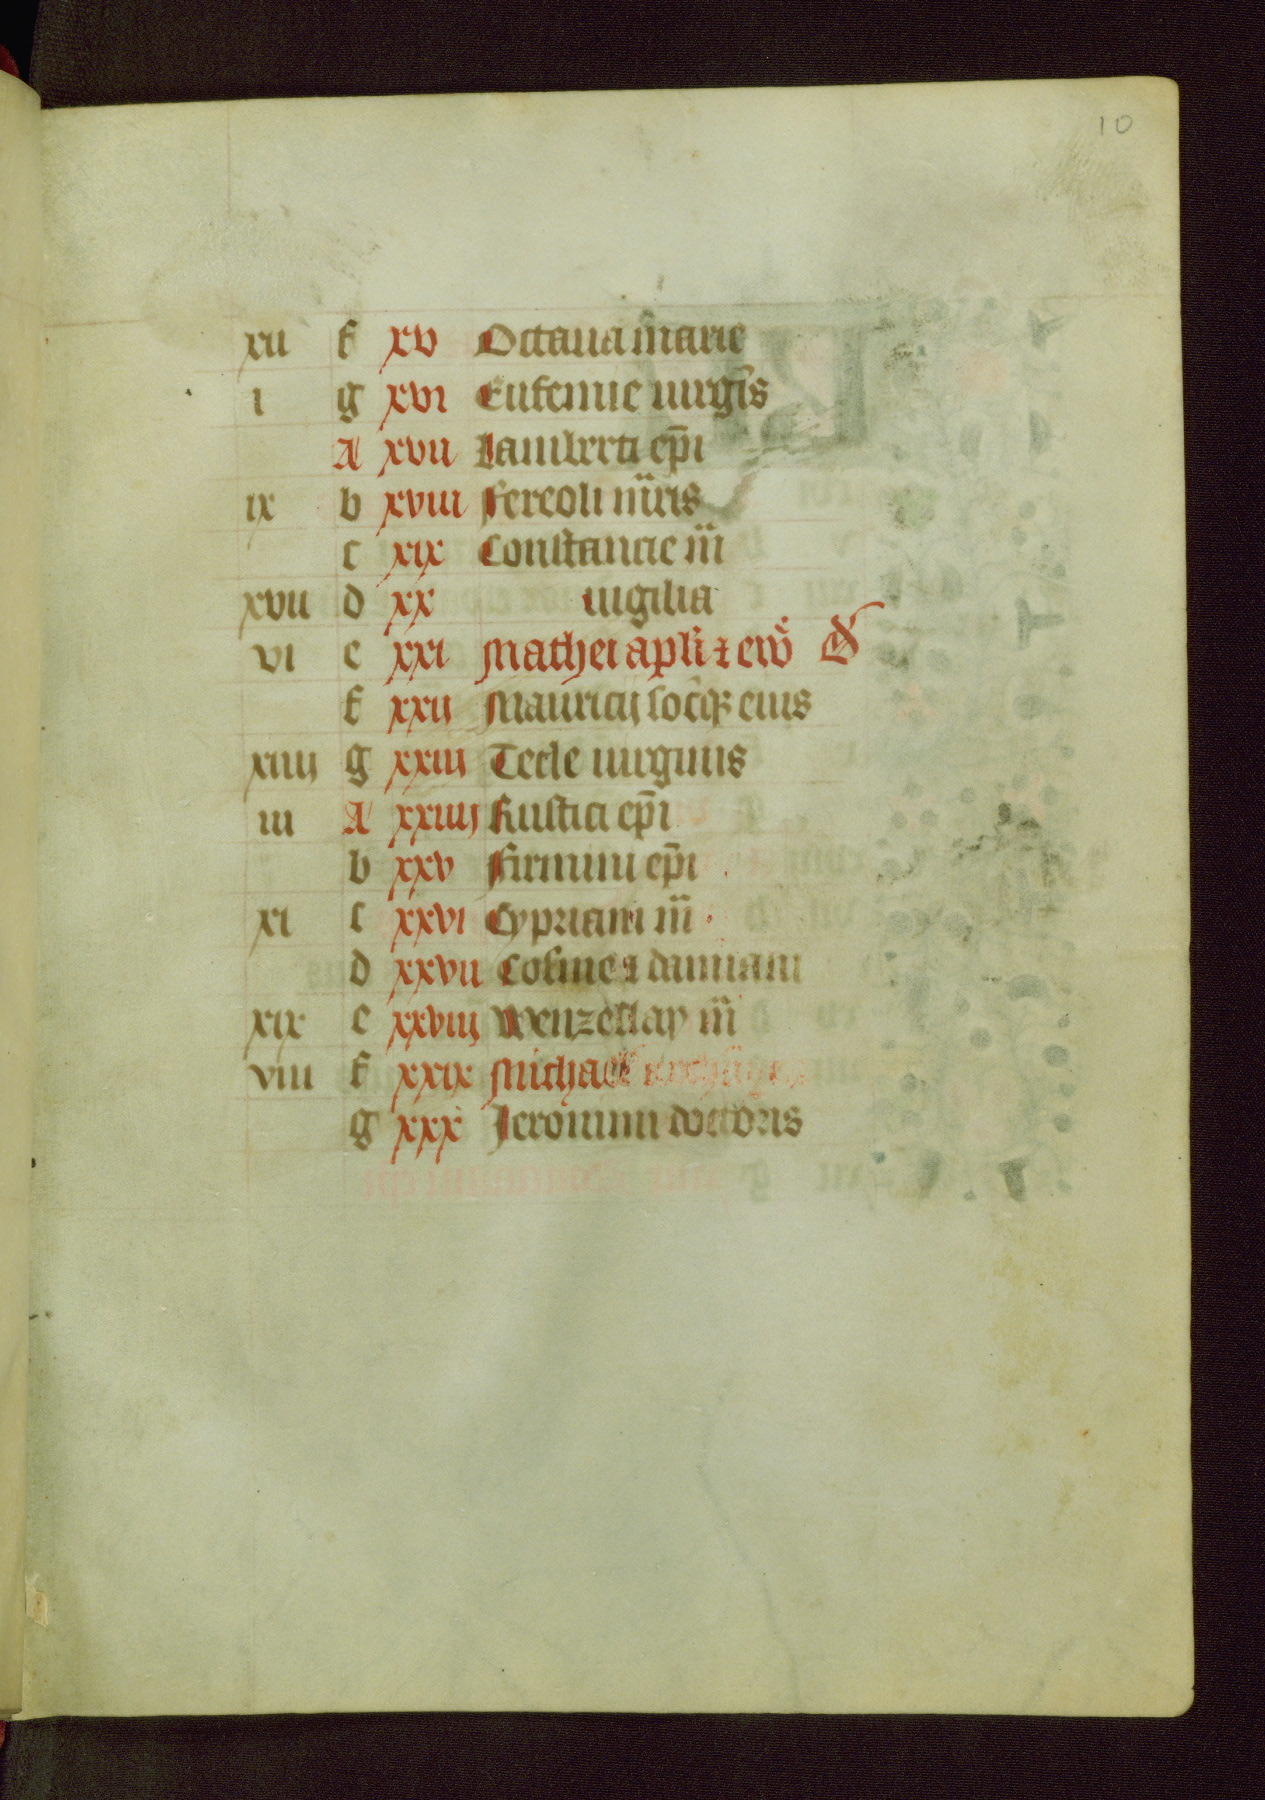 10
xii f xv Octaua marie
i g xvi Eufemie uirgis
A xvii Lamberti epi
ix b xviii Fereoli mris
c xix Constancie m
xvii d xx uigilia
vi e xxi Mathei apli ⁊ ew
f xxii Mauricij socq eius
xiiij g xxiij Tecle uirginis
iii A xxiiij Rustici epi
b xxv Firmini epi
xi c xxvi Cypriani m
d xxvii Cosme ⁊ damiani
xix e xxviij Wenzeslay m
viii f xxix Michael
g xxx Jeronimi doctoris